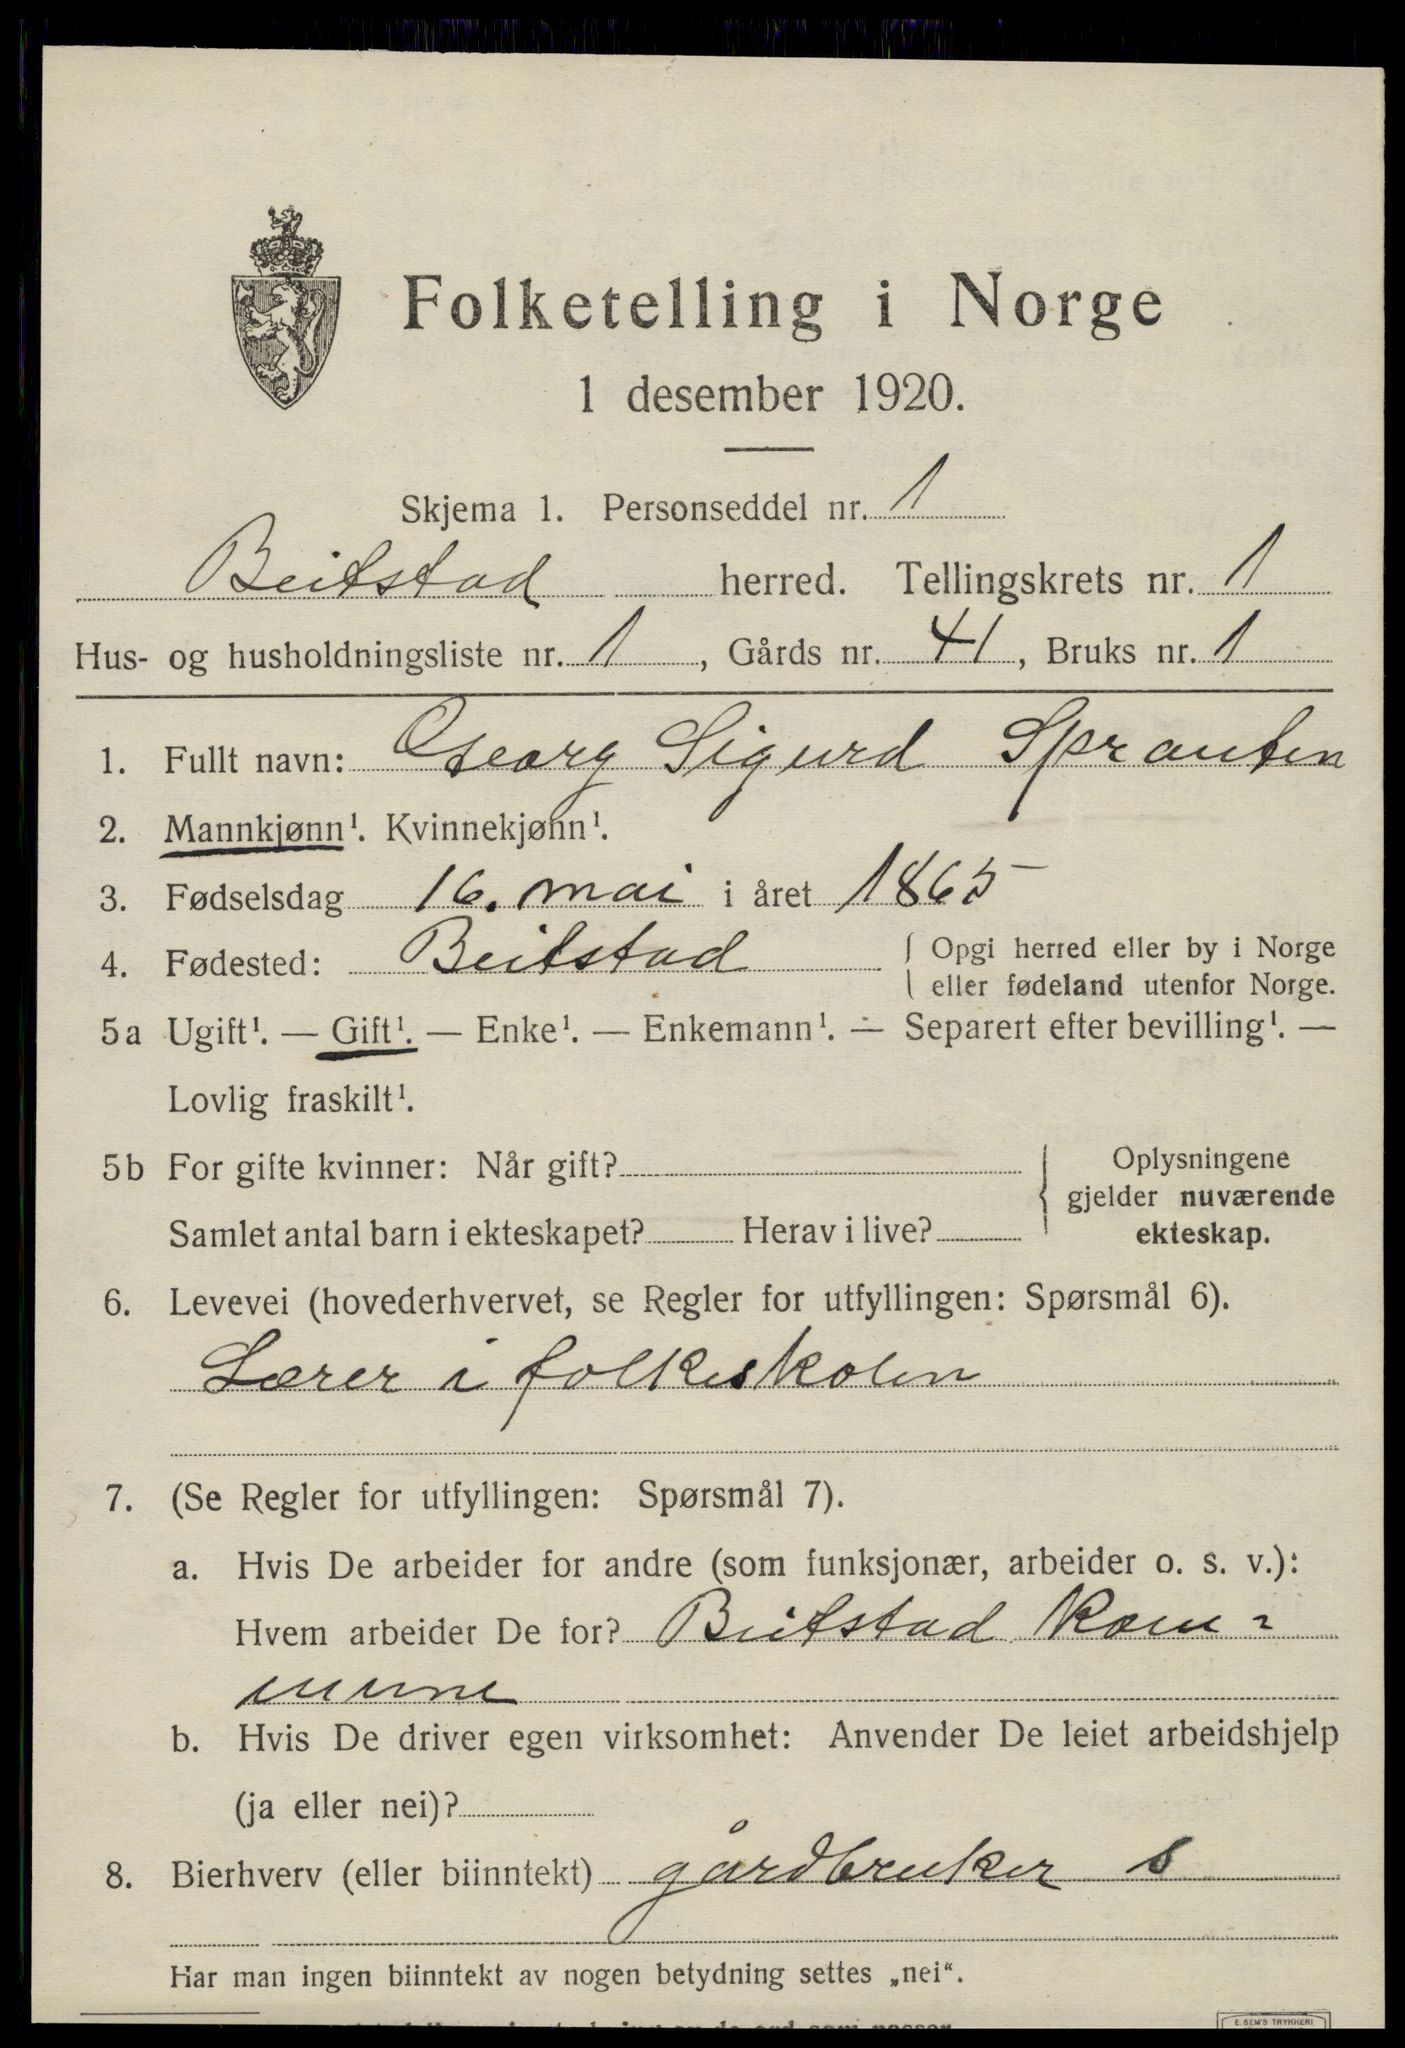 Folketelling i Norge
1 desember 1920.
Skjema 1. Personseddel nr. 1
Beitstad herred. Tellingskrets nr. 1
Hus- og husholdningsliste nr. 1, Gårds nr. 41, Bruks nr. 1
1. Fullt navn: Georg Sigurd Sprauten
2. Mannkjønn¹. Kvinnekjønn¹.
3. Fødselsdag 16. mai i året 1865
4. Fødested: Beitstad { Opgi herred eller by i Norge
eller fødeland utenfor Norge.
5a Ugift¹. — Gift¹. — Enke¹. — Enkemann¹. — Separert efter bevilling¹. —
Lovlig fraskilt¹.
5b For gifte kvinner: Når gift? { Oplysningene
gjelder nuværende
Samlet antal barn i ekteskapet? Herav i live? ekteskap.
6. Levevei (hovederhvervet, se Regler for utfyllingen: Spørsmål 6).
Lærer i folkeskolen
7. (Se Regler for utfyllingen: Spørsmål 7).
a. Hvis De arbeider for andre (som funksjonær, arbeider o. s. v.):
Hvem arbeider De for? Beitstad Kom-
mune
b. Hvis De driver egen virksomhet: Anvender De leiet arbeidshjelp
(ja eller nei)?
8. Bierhverv (eller biinntekt) gårdbruker s
Har man ingen biinntekt av nogen betydning settes „nei“.
E. SEM'S TRYKKERI